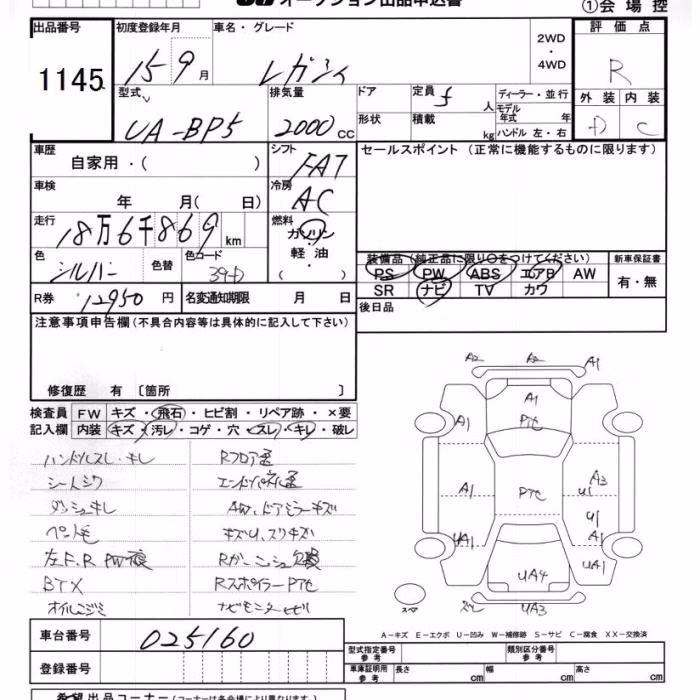 オークション出品申込書
①会場控
出品番号 初度登録年月 車名・グレード 評価点
1145 15 9 月 レガシィ 2WD・4WD R
型式 排気量 ドア 定員 5 人 ディーラー・並行 外装 内装
UA-BP5 2000 CC 形状 積載 kg モデル年式 年 D C
ハンドル 左・右
車歴 自家用・( ) シフト FAT セールスポイント (正常に機能するものに限ります)
車検 年 月( 日) 冷房 AC
走行 18万6千869 km 燃料 ガソリン・軽油・( )
色 シルバー 色替 色コード 39D 装備品(純正品に限り○をつけてください) 新車保証書
PS PW ABS エアB AW 有・無
R券 12950 円 名変通知期限 月 日 SR ナビ TV カワ
後日品
注意事項申告欄(不具合内容等は具体的に記入して下さい)
修復歴 有 〔箇所 〕
検査員 FW キズ・飛石・ヒビ割・リペア跡・×要
記入欄 内装 キズ・汚レ・コゲ・穴・スレ・キレ・破レ
ハンドルスレ・キレ Rフロア歪
シートシワ エンドパネル歪
ダッシュキレ AW、ドアミラーキズ
ペット毛 キズU、スリキズ
左F.R PW痕 Rガーニッシュ欠損
BTX RスポイラーPTE
オイルニジミ ナビモニタービビ
A2 A2 A1
A1
A1 PTE A1
A1 PTE A3
U1
U1
UA1 UA1
UA4
スペア UA3
A-キズ E-エクボ U-凹み W-補修跡 S-サビ C-腐食 XX-交換済
車台番号 025160 型式指定番号 参考 類別区分番号 参考
登録番号 車庫証明用 参考 長さ cm 幅 cm 高さ cm
希望出品コーナー(コーナーは各会場により異なります)